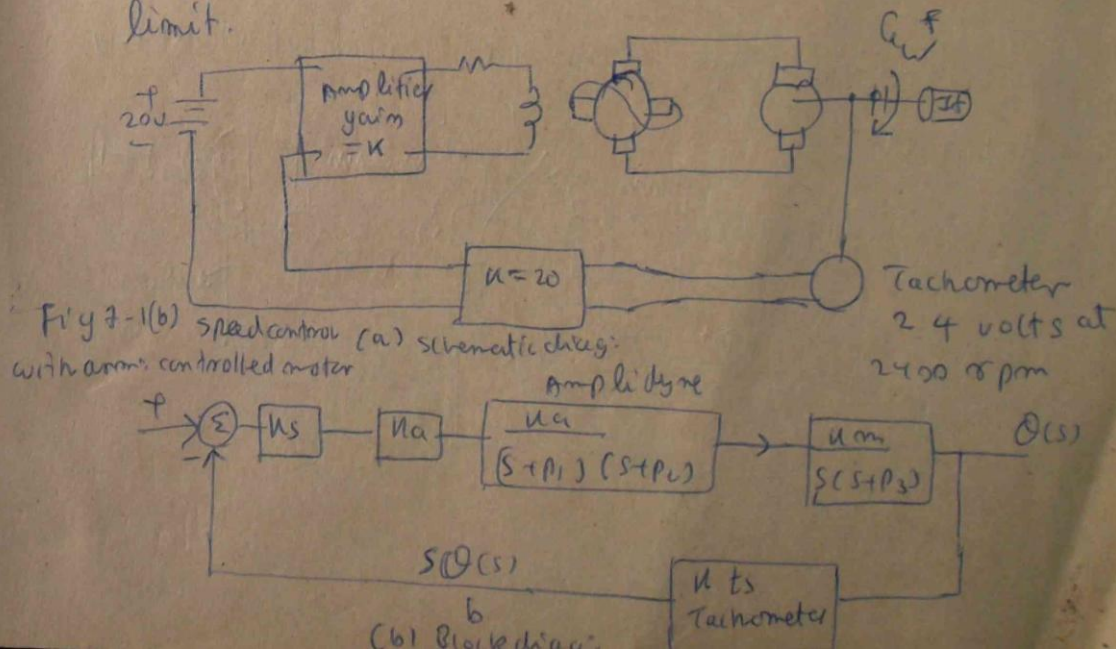 limit.
+
20v
-
Amplifier
gain
= K
f
If
K = 20
Tachometer
2 4 volts at
2400 rpm
Fig 7-1(b) speed control (a) schematic diag:
with arm: controlled motor
Amplidyne
+
Σ
-
Ks
Ka
Ka
(S+P1) (S+P2)
Km
S(S+P3)
θ(s)
Sθ(s)
b
K ts
Tachometer
(b) Block diag: